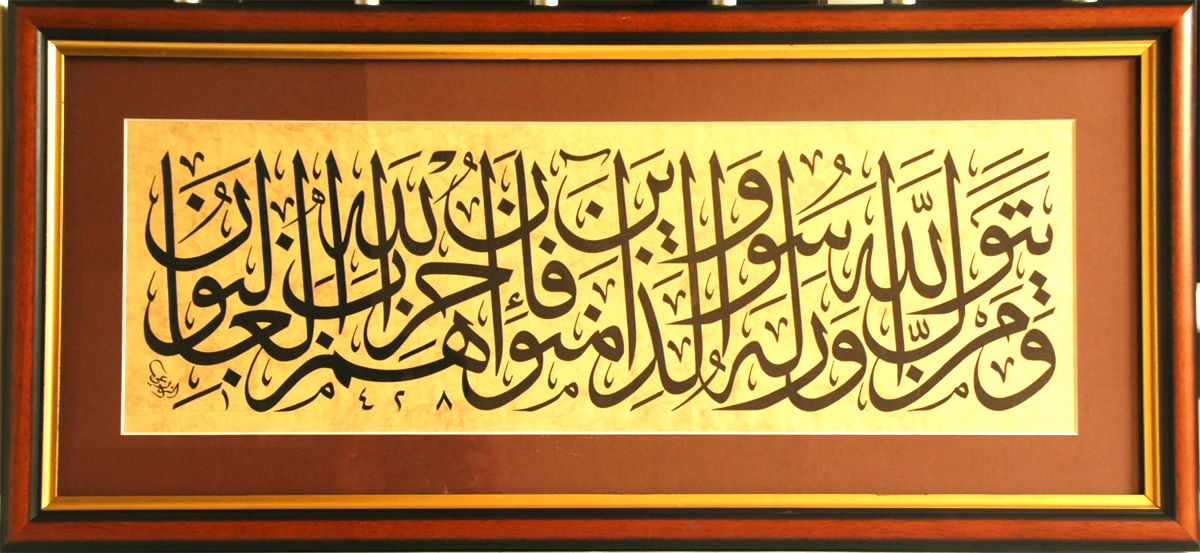 ومن يتول الله ورسوله والذين آمنوا فإن حزب الله هم الغالبون